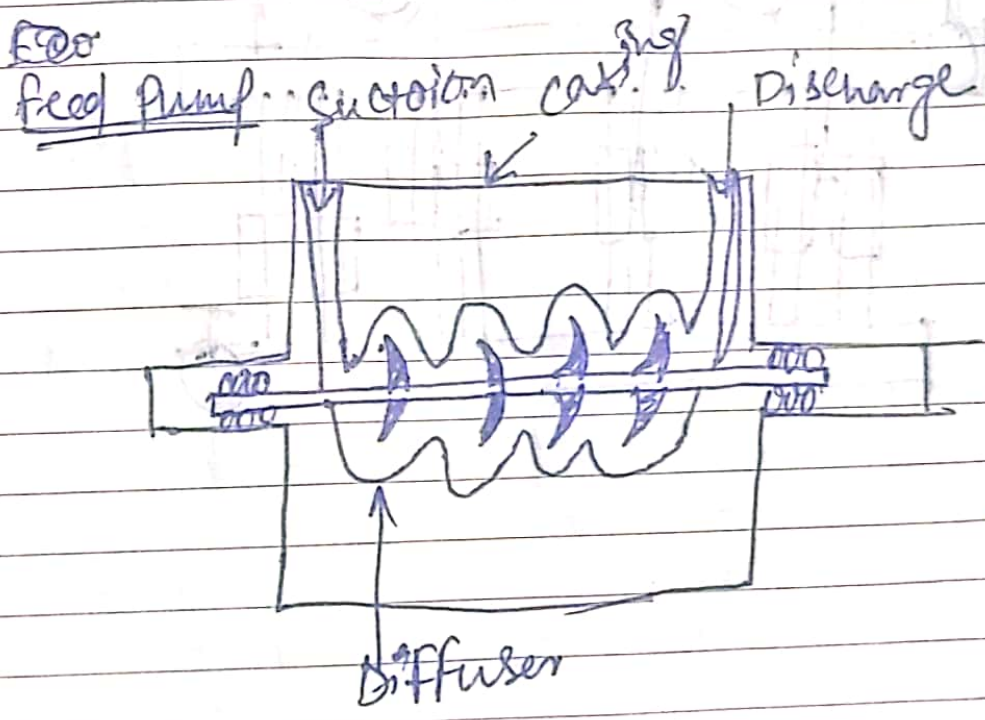 Feed Pump. Suctoion casing Discharge
Diffuser